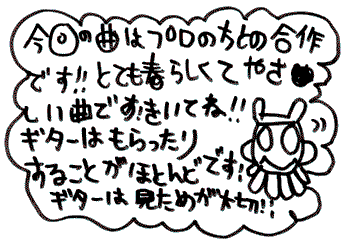 今回の曲はプロのちとの合作
です!!とても春らしくてやさ
しい曲です!きいてね!!
ギターはもらったり
することがほとんどです!
ギターは見ためが大切!!